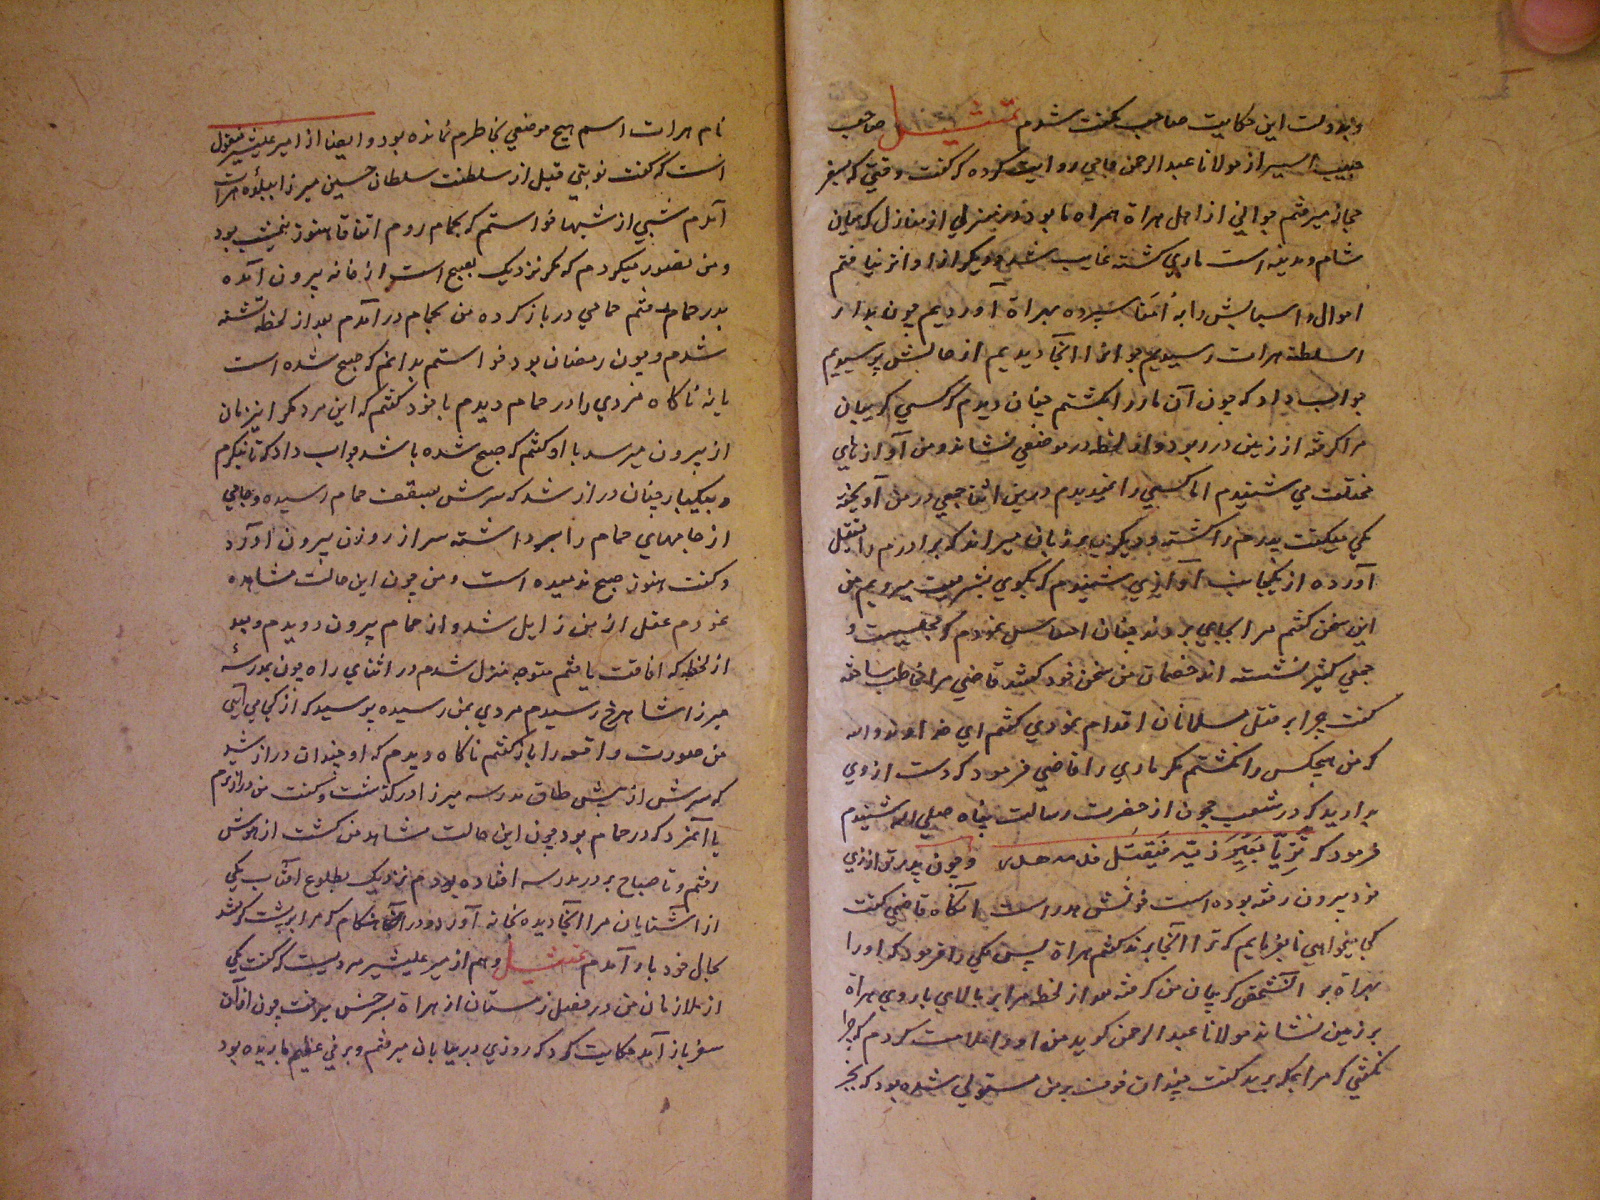 وبدولت این حکایت صاحب مکنت شدم تمثیل صاحب
حبیب السیر از مولانا عبدالرحمن جامی روایت کرده که گفت وقتی که بسفر
حجاز میرفتم جوانی از اهل هراة همراه ما بود در منزلی از منازل که میان
شام و مدینه است ماری کشته غایب شد و دیگر ازو اثر نیافتم
اموال و اسبابش را به امنا سپرده بهراة آوردیم چون بدار
السلطنه هرات رسیدیم جوانرا آنجا دیدیم از حالش پرسیدیم
جواب داد که چون آن مار را بکشتم چنان دیدم که کسی گریبان
مرا گرفته از زمین در ربود و از لحظه در موضعی نشاند و من آوازهای
مختلف می شنیدم اما کسی را نمیدیدم درین اثنا جمعی در من آویخته
یکی میگفت پدرم را کشته و دیگری بر زبان میراند که برادرم را بقتل
آورده از یکجانب آوازی شنیدم که بگوی بشریعت میرویم من
این سخن گفتم مرا بجایی بردند چنان احساس نمودم که مجلسیست و
جمعی کثیر نشسته اند خصمان من سخن خود گفتند قاضی مرا مخاطب ساخته
گفت چرا بر قتل مسلمانان اقدام نمودی گفتم ای خداوند والله
که من هیچکس را نکشتم مگر ماری را قاضی فرمود که دست از وی
بدارید که در شعب جون از حضرت رسالت پناه صلی الله شنیدم
فرمود که من تزیا بغیر زیه فقتل فدمه هدر و چون پدر تو از زی
خود بیرون رفته بوده است خونش هدر است آنگاه قاضی گفت
کجا میخواهی تا بفرمایم که ترا آنجا برند گفتم هراة پس یکی را فرمود که او را
بهراة بر آنشخص گریبان من گرفته بعد از لحظه مرا بر بالای باروی هراة
بر زمین نشاند مولانا عبدالرحمن گوید من او را ملامت کردم که چرا
نگفتی که مرا بمکه برید گفت چندان خوف بر من مستولی شده بود که بجز
نام هرات اسم هیچ موضعی بخاطرم نمانده بود و ایضا از امیر علیشیر منقول
است که گفت نوبتی قبل از سلطنت سلطان حسین میرزا ببلده هرات
آمدم شبی از شبها خواستم که بحمام روم اتفاقا هنوز نیمشب بود
و من تصور میکردم که مگر نزدیک بصبح است از خانه بیرون آمده
بدر حمام رفتم حمامی در باز کرده من بحمام درآمدم بعد از لحظه تشنه
شدم و چون رمضان بود خواستم بدانم که صبح شده است
یا نه ناگاه مردی را در حمام دیدم با خود گفتم که این مرد مگر اینزمان
از بیرون میرسد با او گفتم که صبح شده باشد جواب داد که تا بنگرم
و بیکبار چنان دراز شد که سرش بسقف حمام رسیده و جامی
از جامهای حمام را برداشته سر از روزن بیرون آورد
و گفت هنوز صبح ندمیده است و من چون این حالت مشاهده
نمودم عقل از من زایل شد و از حمام بیرون دویدم و بعد
از لحظه که افاقت یافتم متوجه منزل شدم در اثنای راه چون بمدرسه
میرزا شاهرخ رسیدم مردی بمن رسیده پرسید که از کجا می آیی
من صورت واقعه را باز گفتم ناگاه دیدم که او چندان دراز شد
که سرش از پیش طاق مدرسه میرزا درگذشت و گفت من درازترم
یا آنمرد که در حمام بود چون این حالت مشاهد من گشت از هوش
رفتم و تا صباح بر در مدرسه افتاده بودم نزدیک بطلوع آفتاب یکی
از آشنایان مرا آنجا دیده بخانه آورد و در آن هنگام که مرا بر پشت گرفته
بحال خود باز آمدم تمثیل و هم از میر علیشیر مرویست که گفت یکی
از ملازمان من در فصل زمستان از هراة بسرخس میرفت چون از آن
سفر باز آمد حکایت کرد که روزی در بیابان میرفتم و برفی عظیم باریده بود